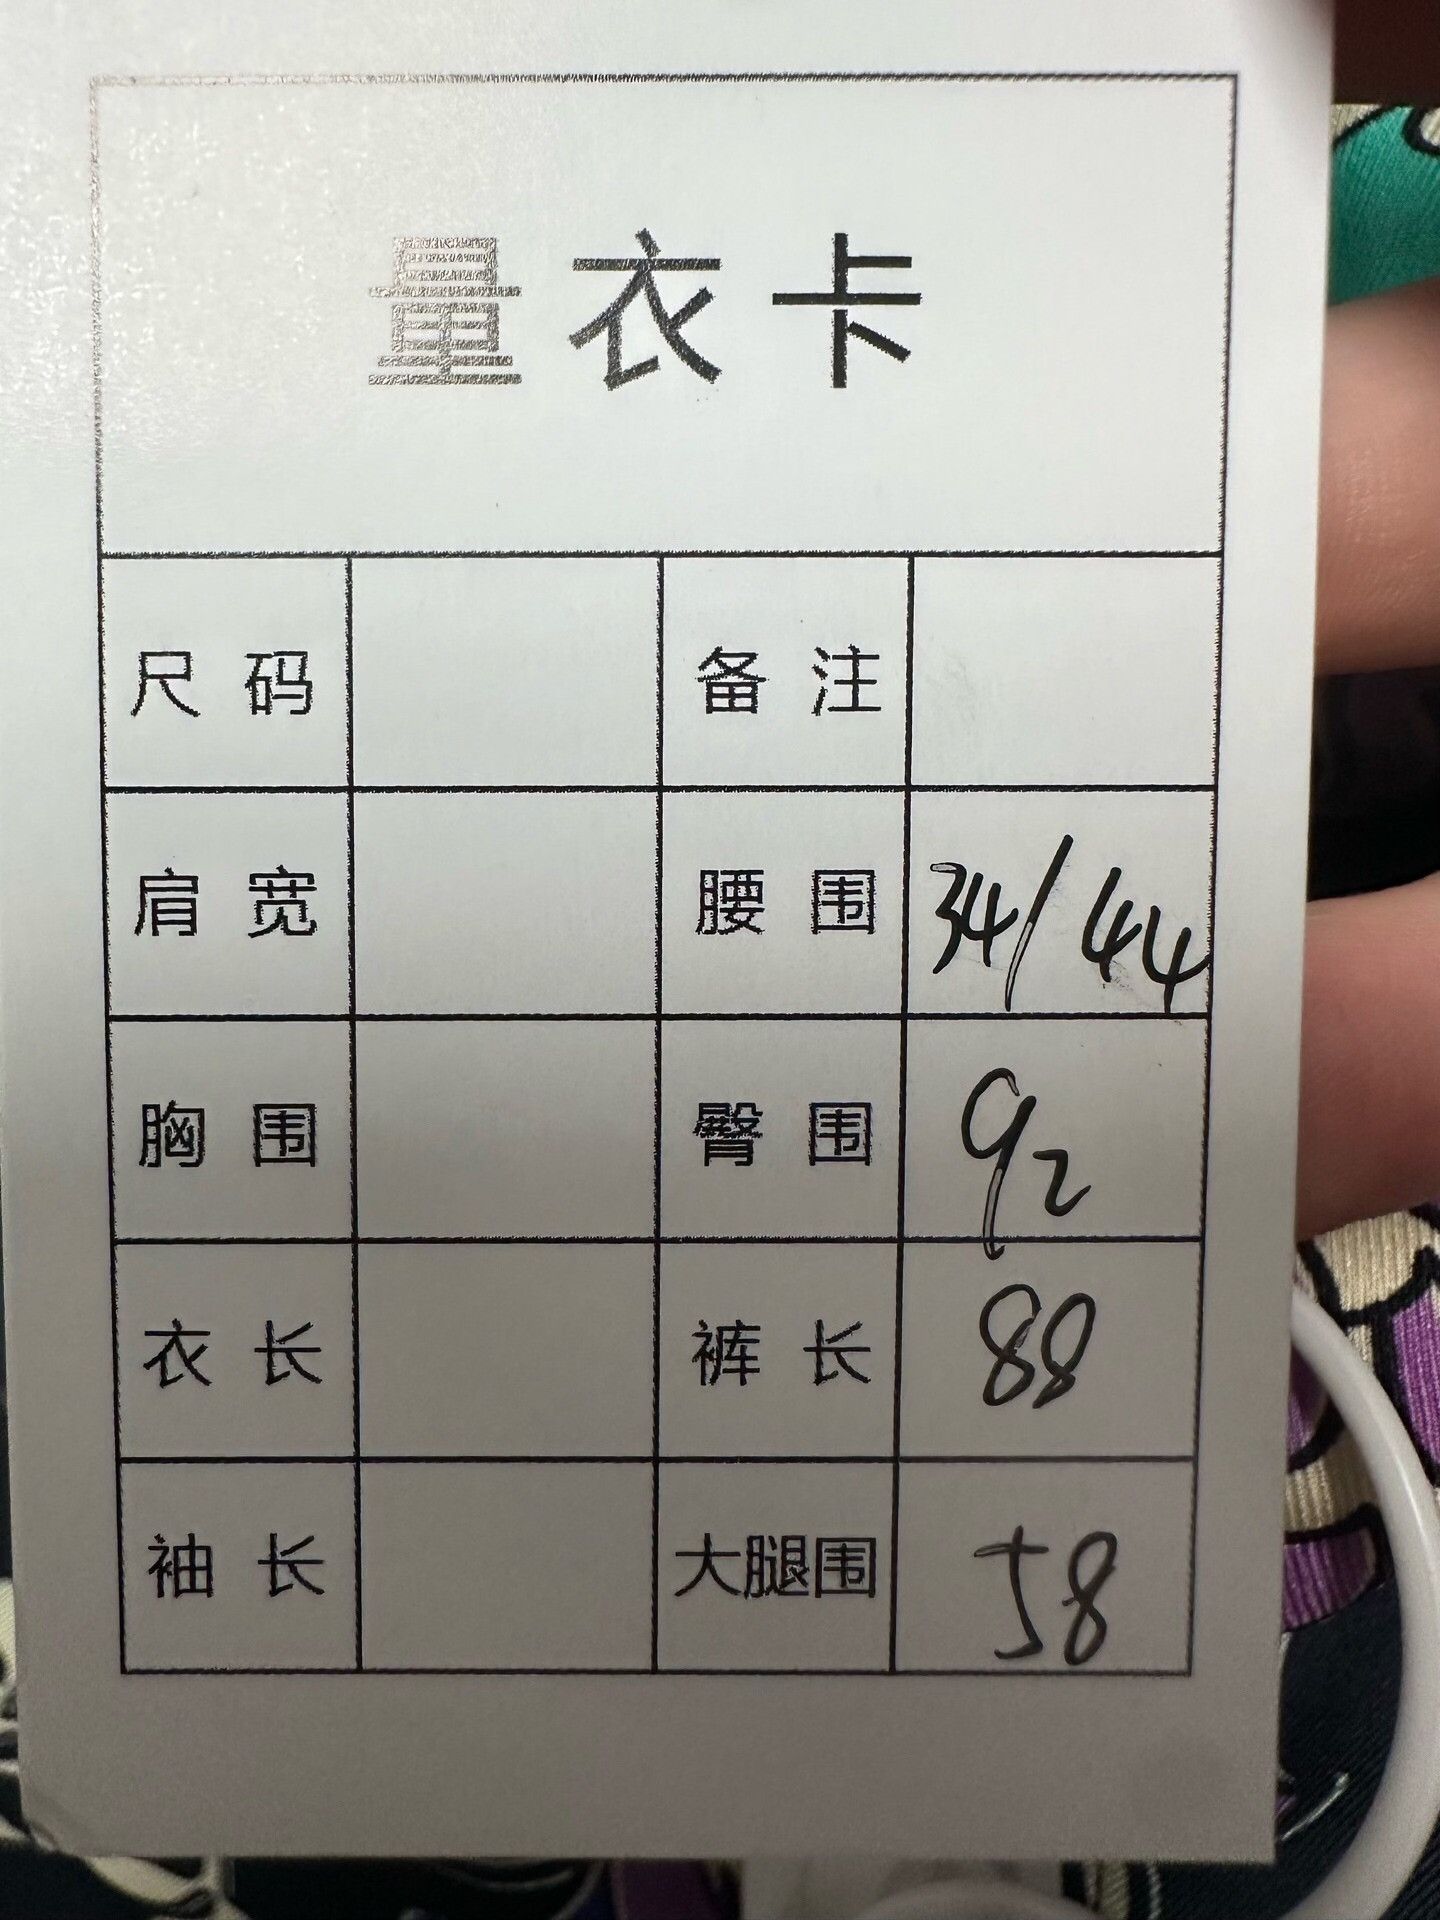 量衣卡
尺码 备注
肩宽 腰围 34/44
胸围 臀围 92
衣长 裤长 88
袖长 大腿围 58